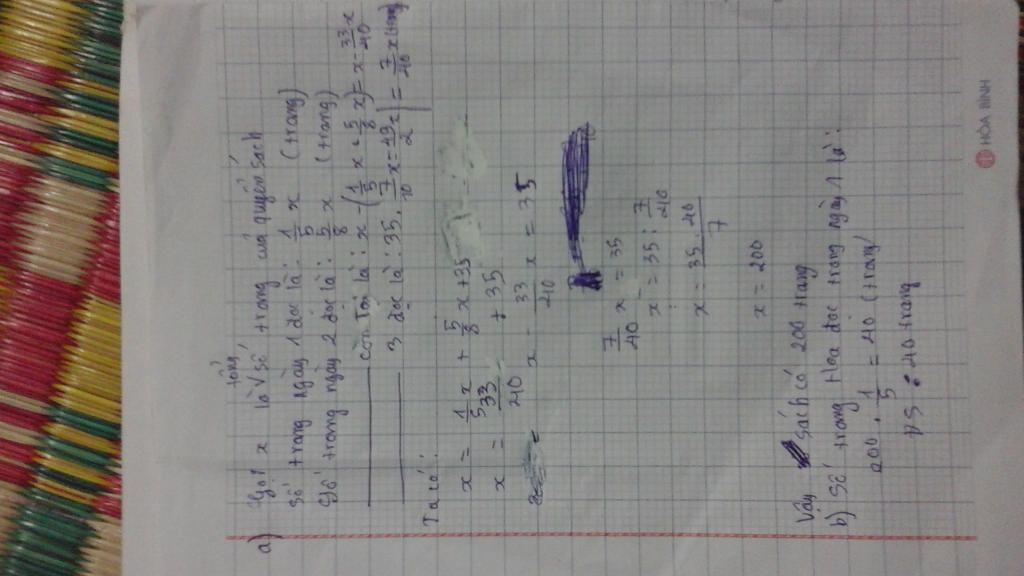 a) Gọi x là tổng số trang của quyển sách
Số trang ngày 1 đọc là: 1/5 x (trang)
Số trang ngày 2 đọc là: 5/8 x (trang)
còn lại là: x - (1/5 x + 5/8 x) = x - 33/40 x
3 đọc là: 35. 7/10 x = 7/40 x (trang)
Ta có:
x = 1/5 x + 5/8 x + 35
x = 33/40 + 35
x - 33/40 x = 35
7/40 x = 35
x = 35 : 7/40
x = 35.40/7
x = 200
Vậy sách có 200 trang
b) Số trang Hoa đọc trong ngày 1 là:
200 . 1/5 = 40 (trang)
ĐS: 40 trang
HÒA BÌNH